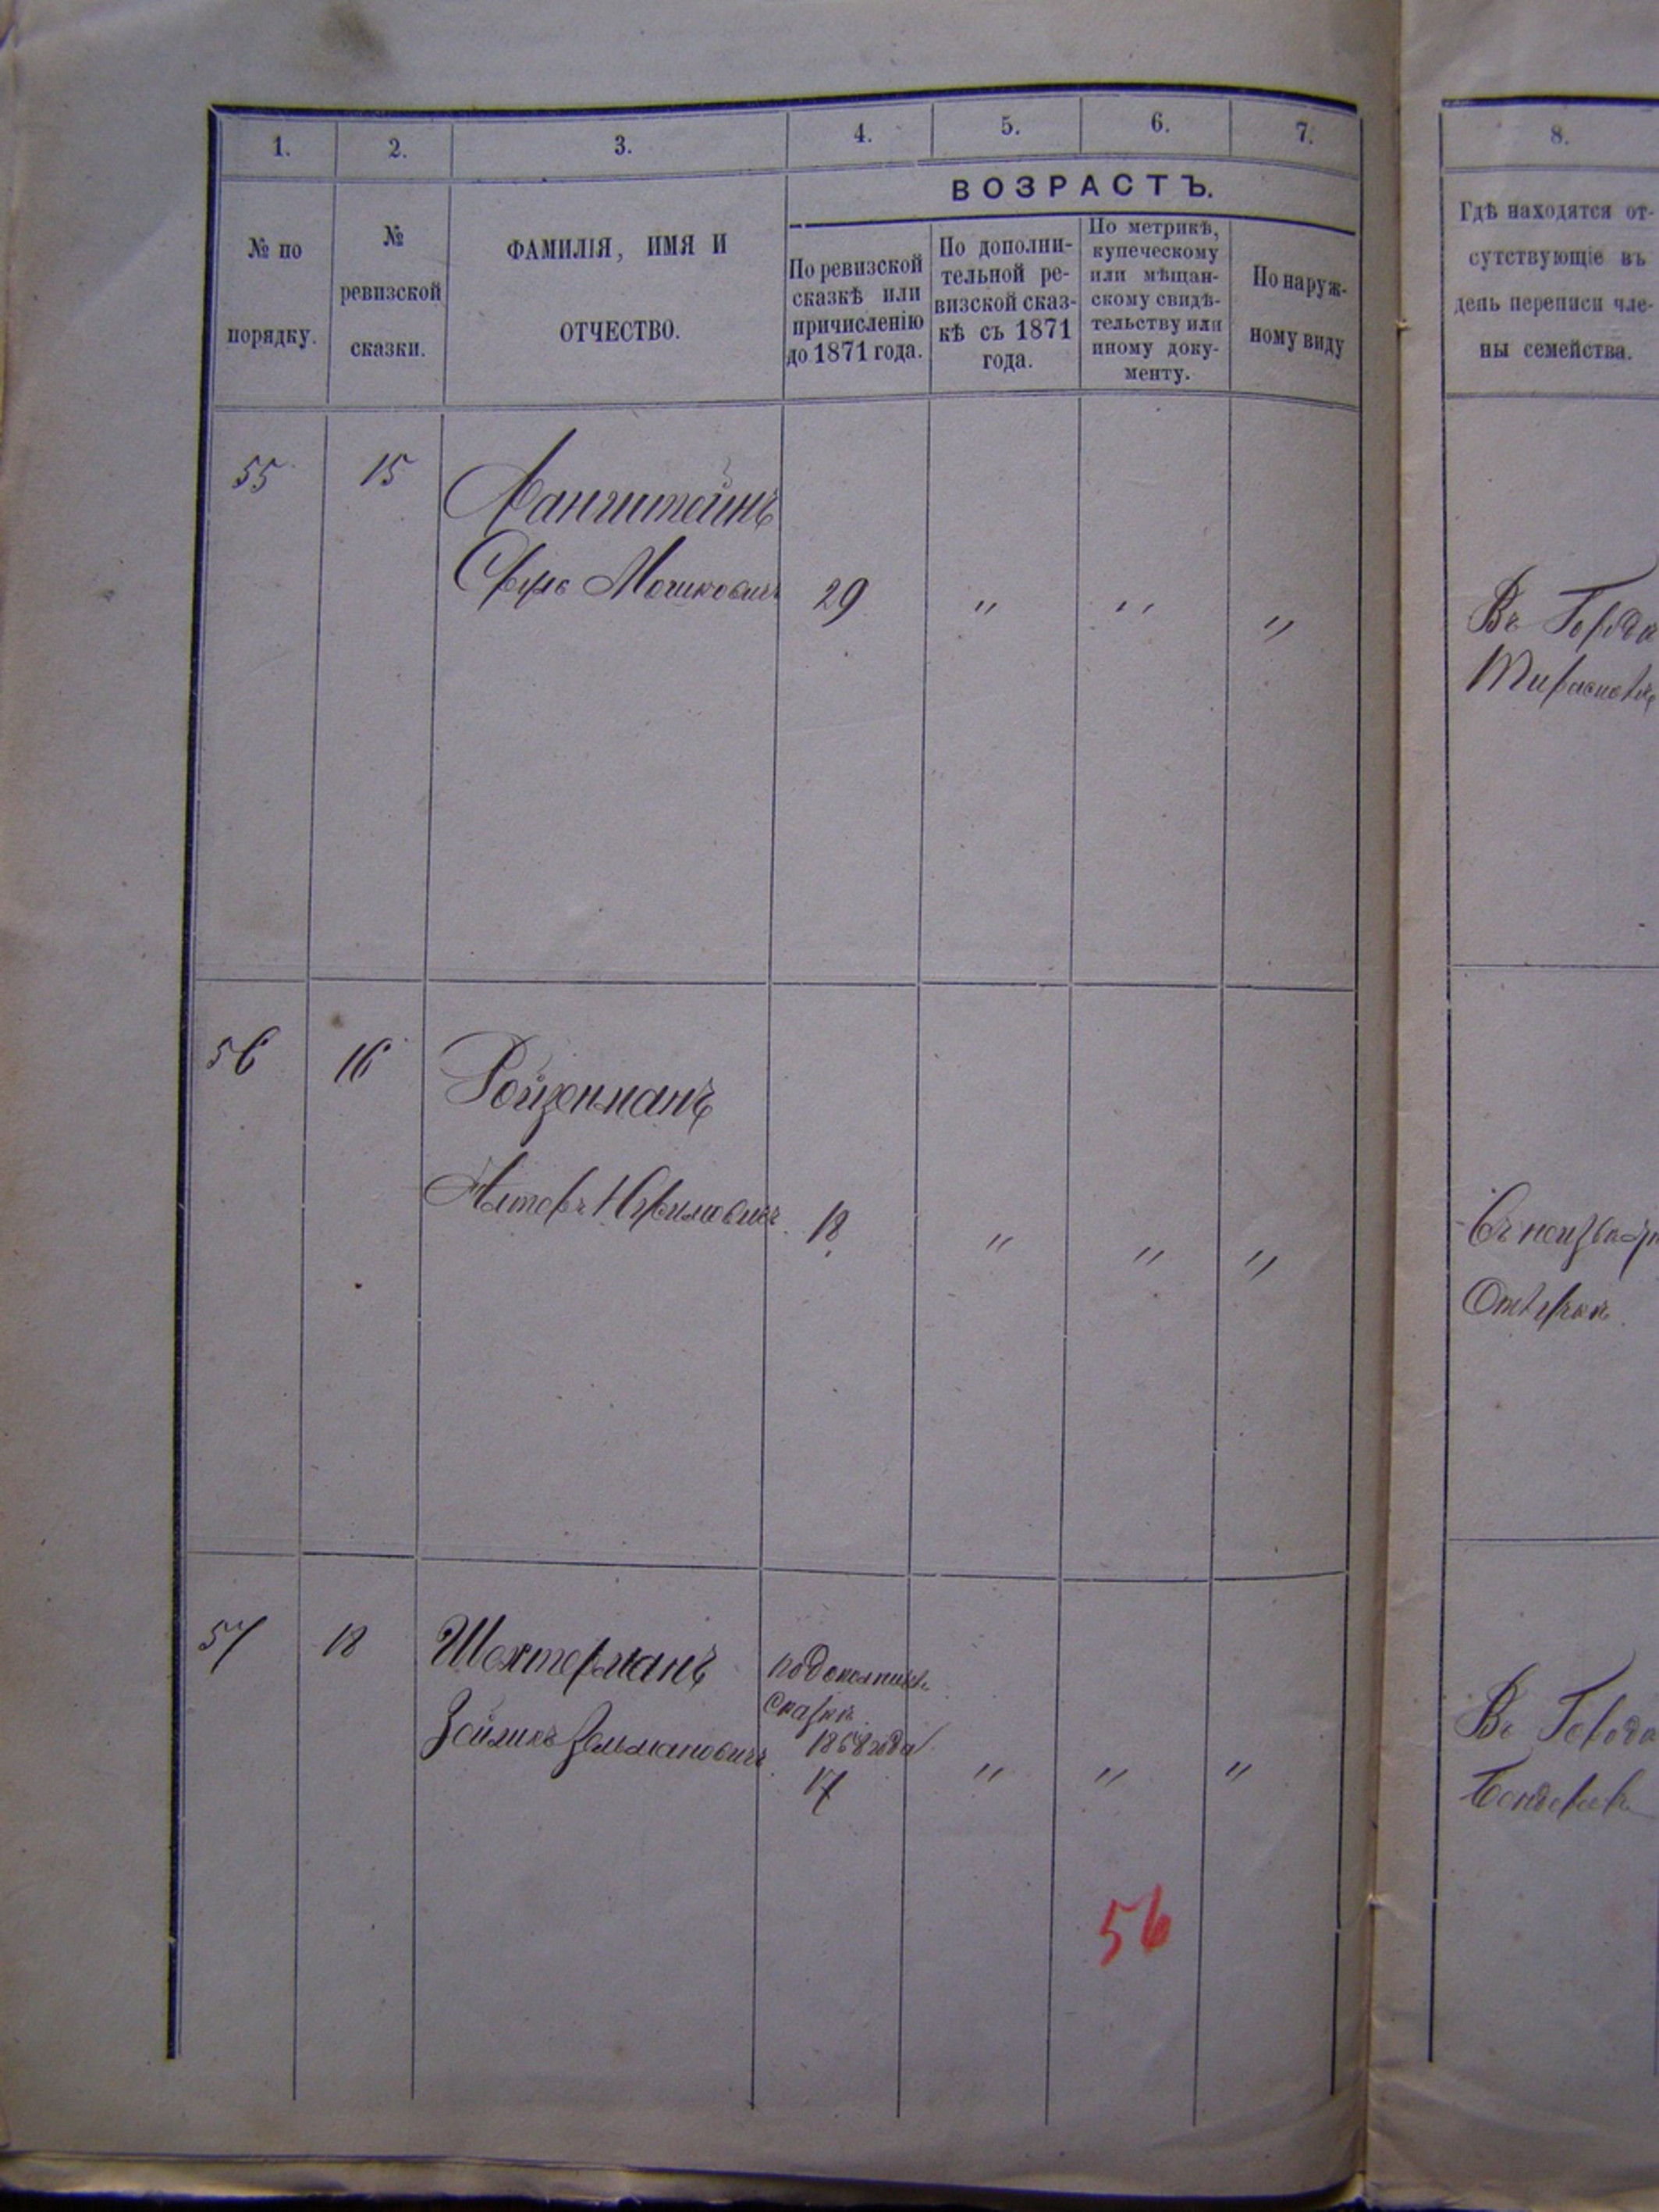 1. 2. 3. 4. 5. 6. 7. 8.
ВОЗРАСТЪ.
№ по
порядку.
№
ревизской
сказки.
ФАМИЛІЯ, ИМЯ И
ОТЧЕСТВО.
По ревизской
сказкѣ или
причисленію
до 1871 года.
По дополни-
тельной ре-
визской сказ-
кѣ съ 1871
года.
По метрикѣ,
купеческому
или мѣщан-
скому свидѣ-
тельству или
иному доку-
менту.
По наруж-
ному виду
Гдѣ находятся от-
сутствующіе въ
день переписи чле-
ны семейства.
55 15 Лангштейнъ
Мошковичъ 29 " " "
Въ Города
Тирасполѣ
56 16 Ройзенманъ
Алтеръ 18 " " "
Отлучкѣ
57 18 Шехтерманъ
Зейликъ Зельмановичъ
сказкѣ
1868 года
17 " " "
Въ Города
56